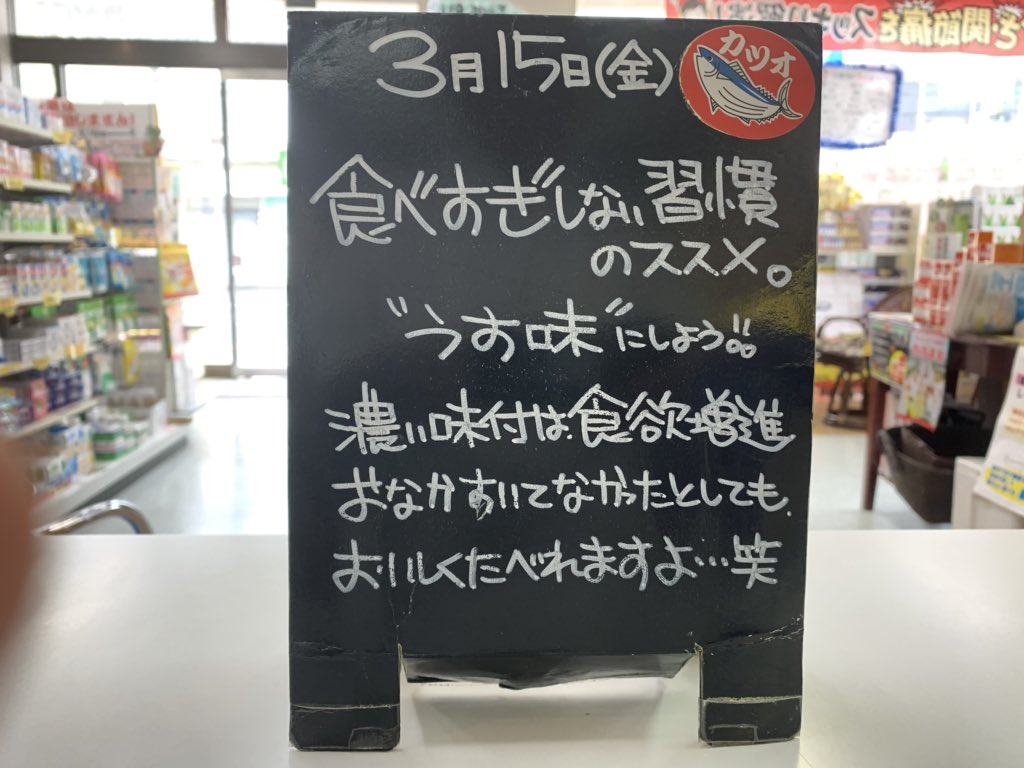 3月15日(金)
カツオ
食べすぎしない習慣
のススメ。
"うす味"にしよう!!
濃い味付は、食欲増進
おなかすいてなかったとしても、
おいしくたべれますよ…笑